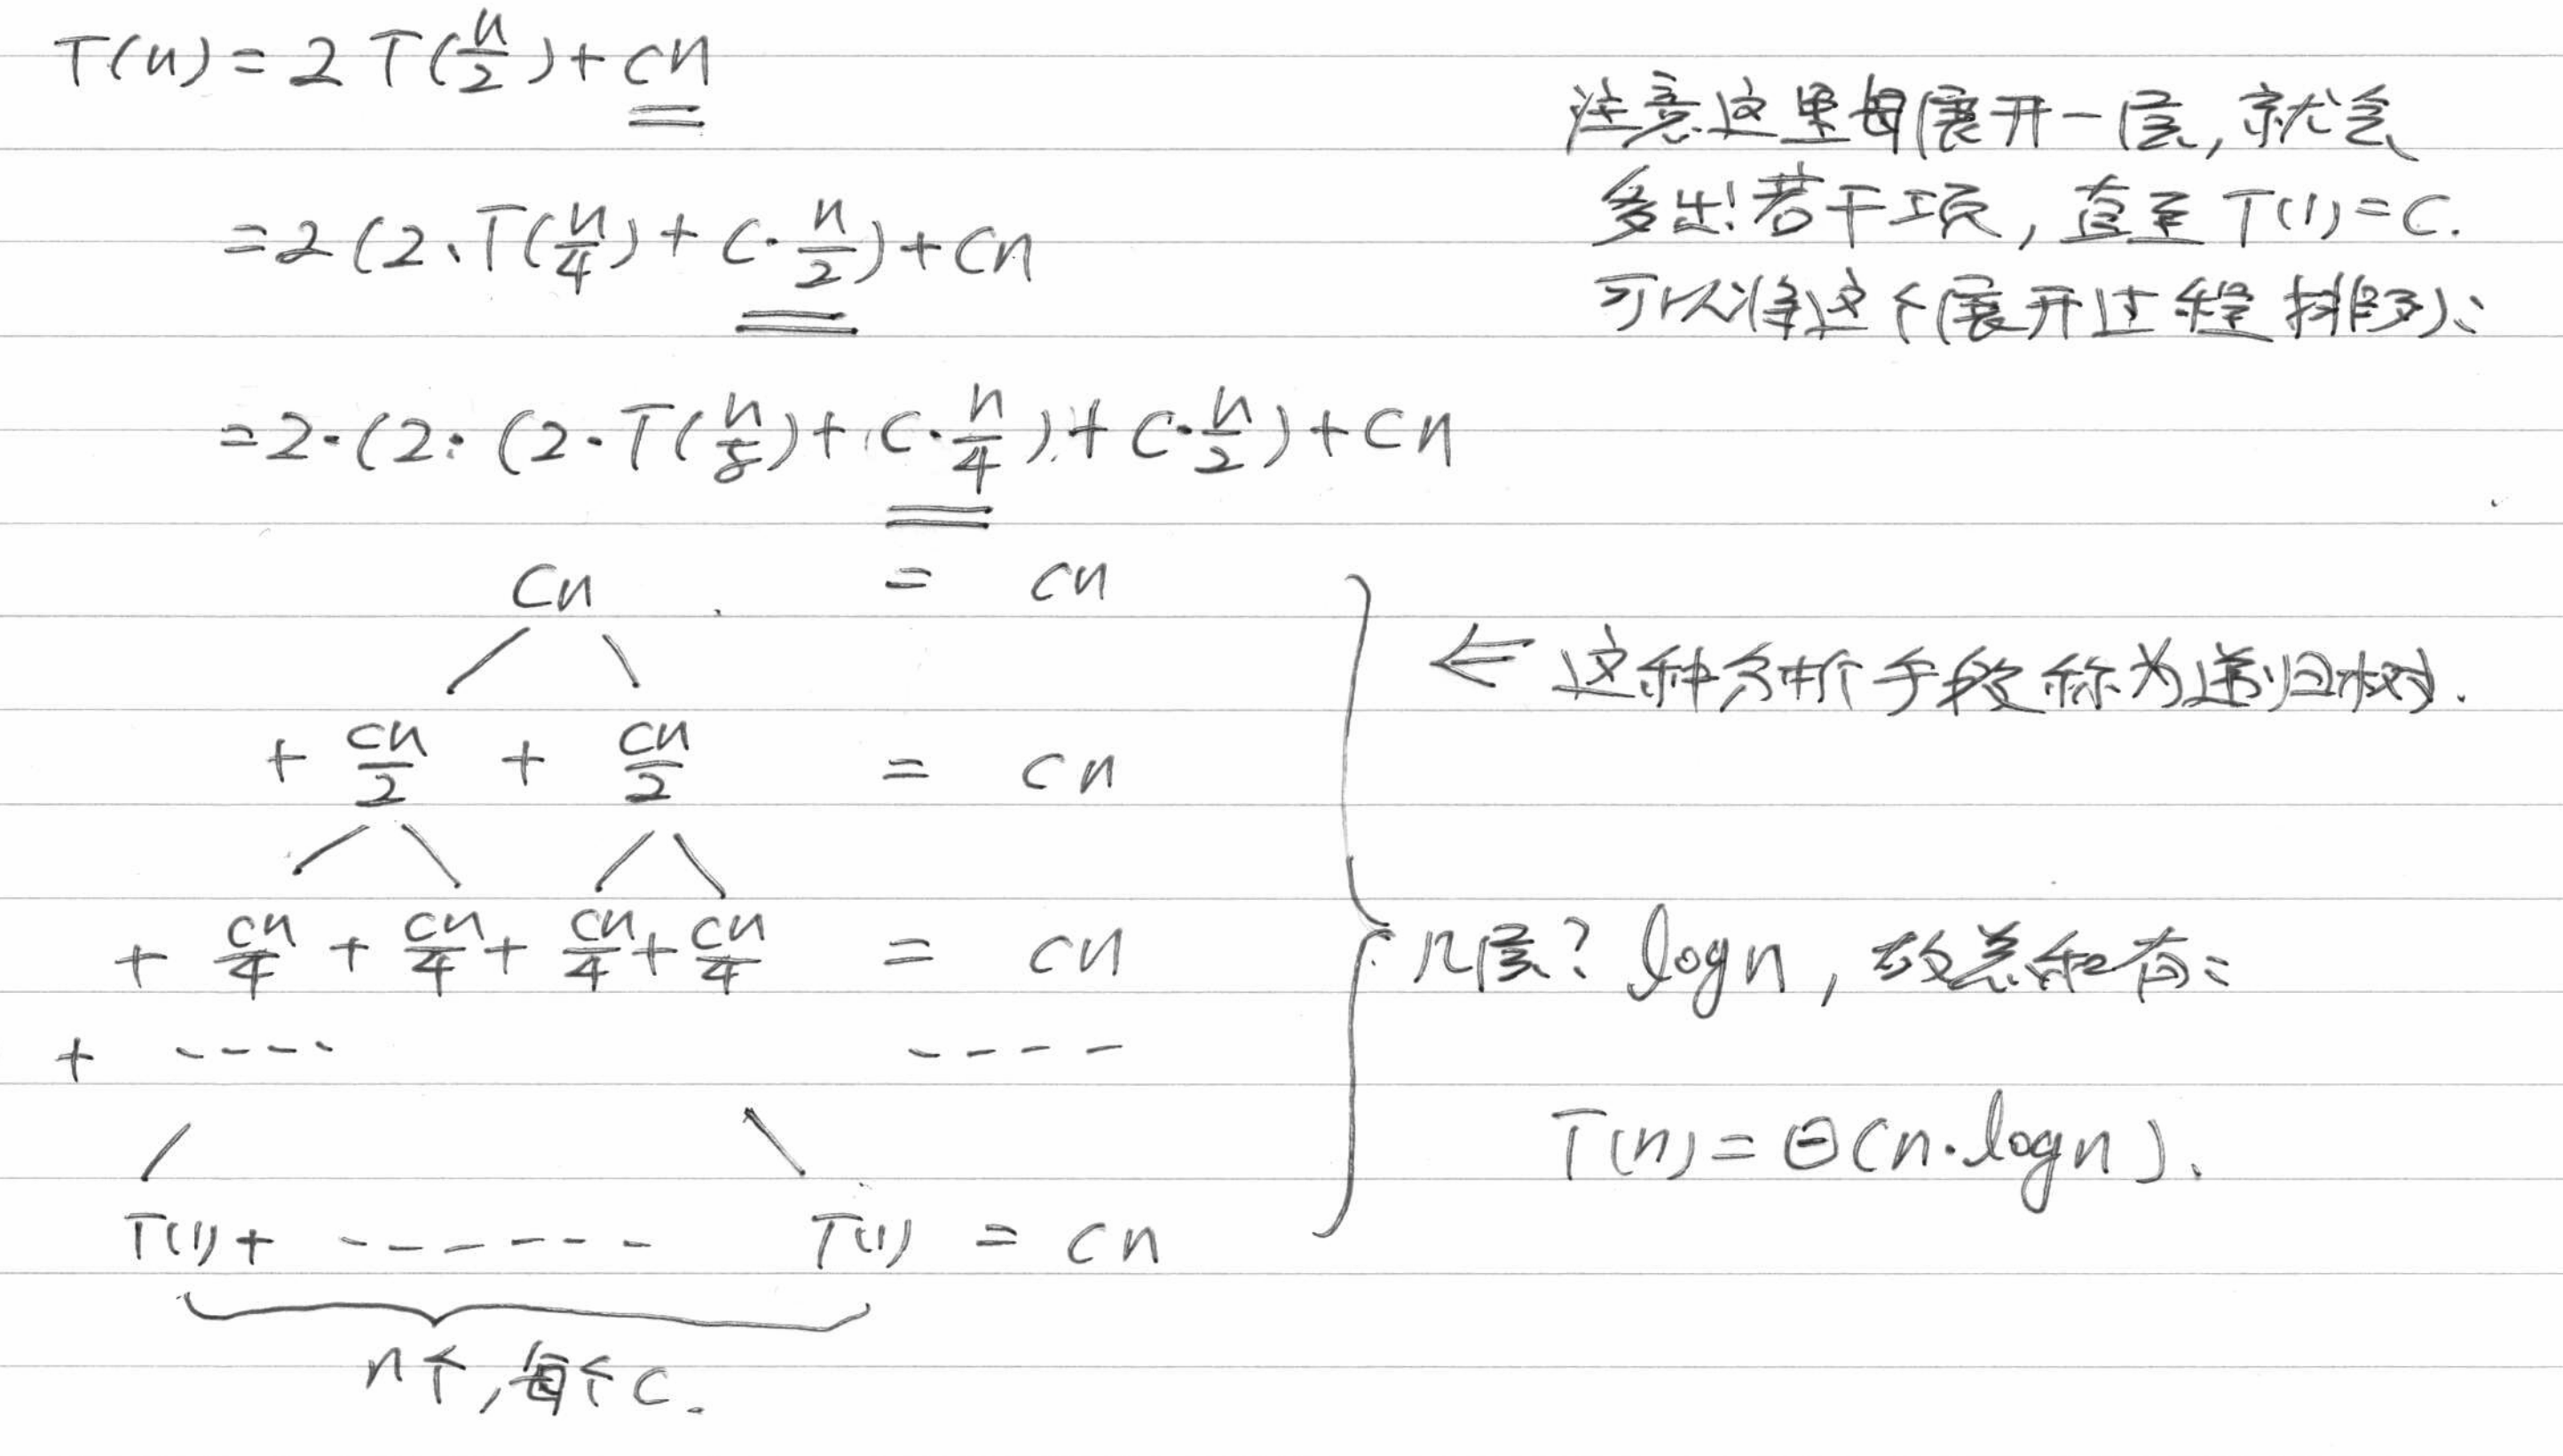 T(n) = 2 T(n/2) + cn
= 2 (2·T(n/4) + c·n/2) + cn
= 2·(2·(2·T(n/8) + c·n/4) + c·n/2) + cn
注意这里每展开一层,就会
多出若干项,直至 T(1)=C.
可以将这个展开过程排列:
cn = cn
+ cn/2 + cn/2 = cn
+ cn/4 + cn/4 + cn/4 + cn/4 = cn
+ ---- ----
T(1) + ------ T(1) = cn
n个,每个c.
⇐ 这种分析手段称为递归树.
几层? logn, 故总和有:
T(n) = Θ(n·logn).